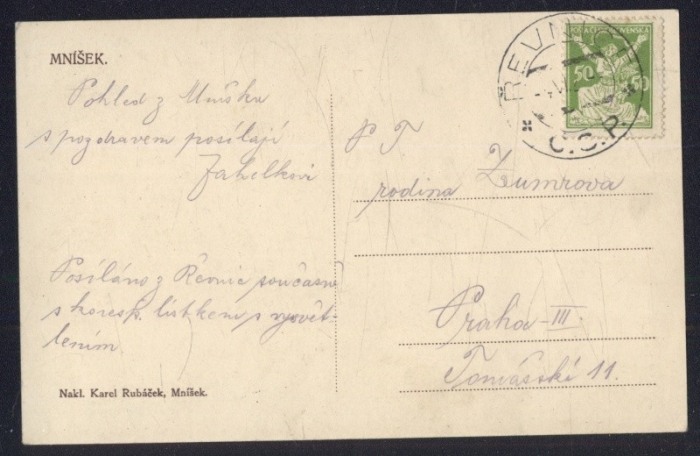 MNÍŠEK.
Pohled z Mníška
s pozdravem posílají
Posíláno z Řevnic současně
s koresp. lístkem s vysvět-
lením
Nakl. Karel Rubáček, Mníšek.
ŘEVNI
Č.S.P.
ČESKOSLOVENSKA
50 50
P T
rodina Zumrova
Praha-III.
Tomášská 11.